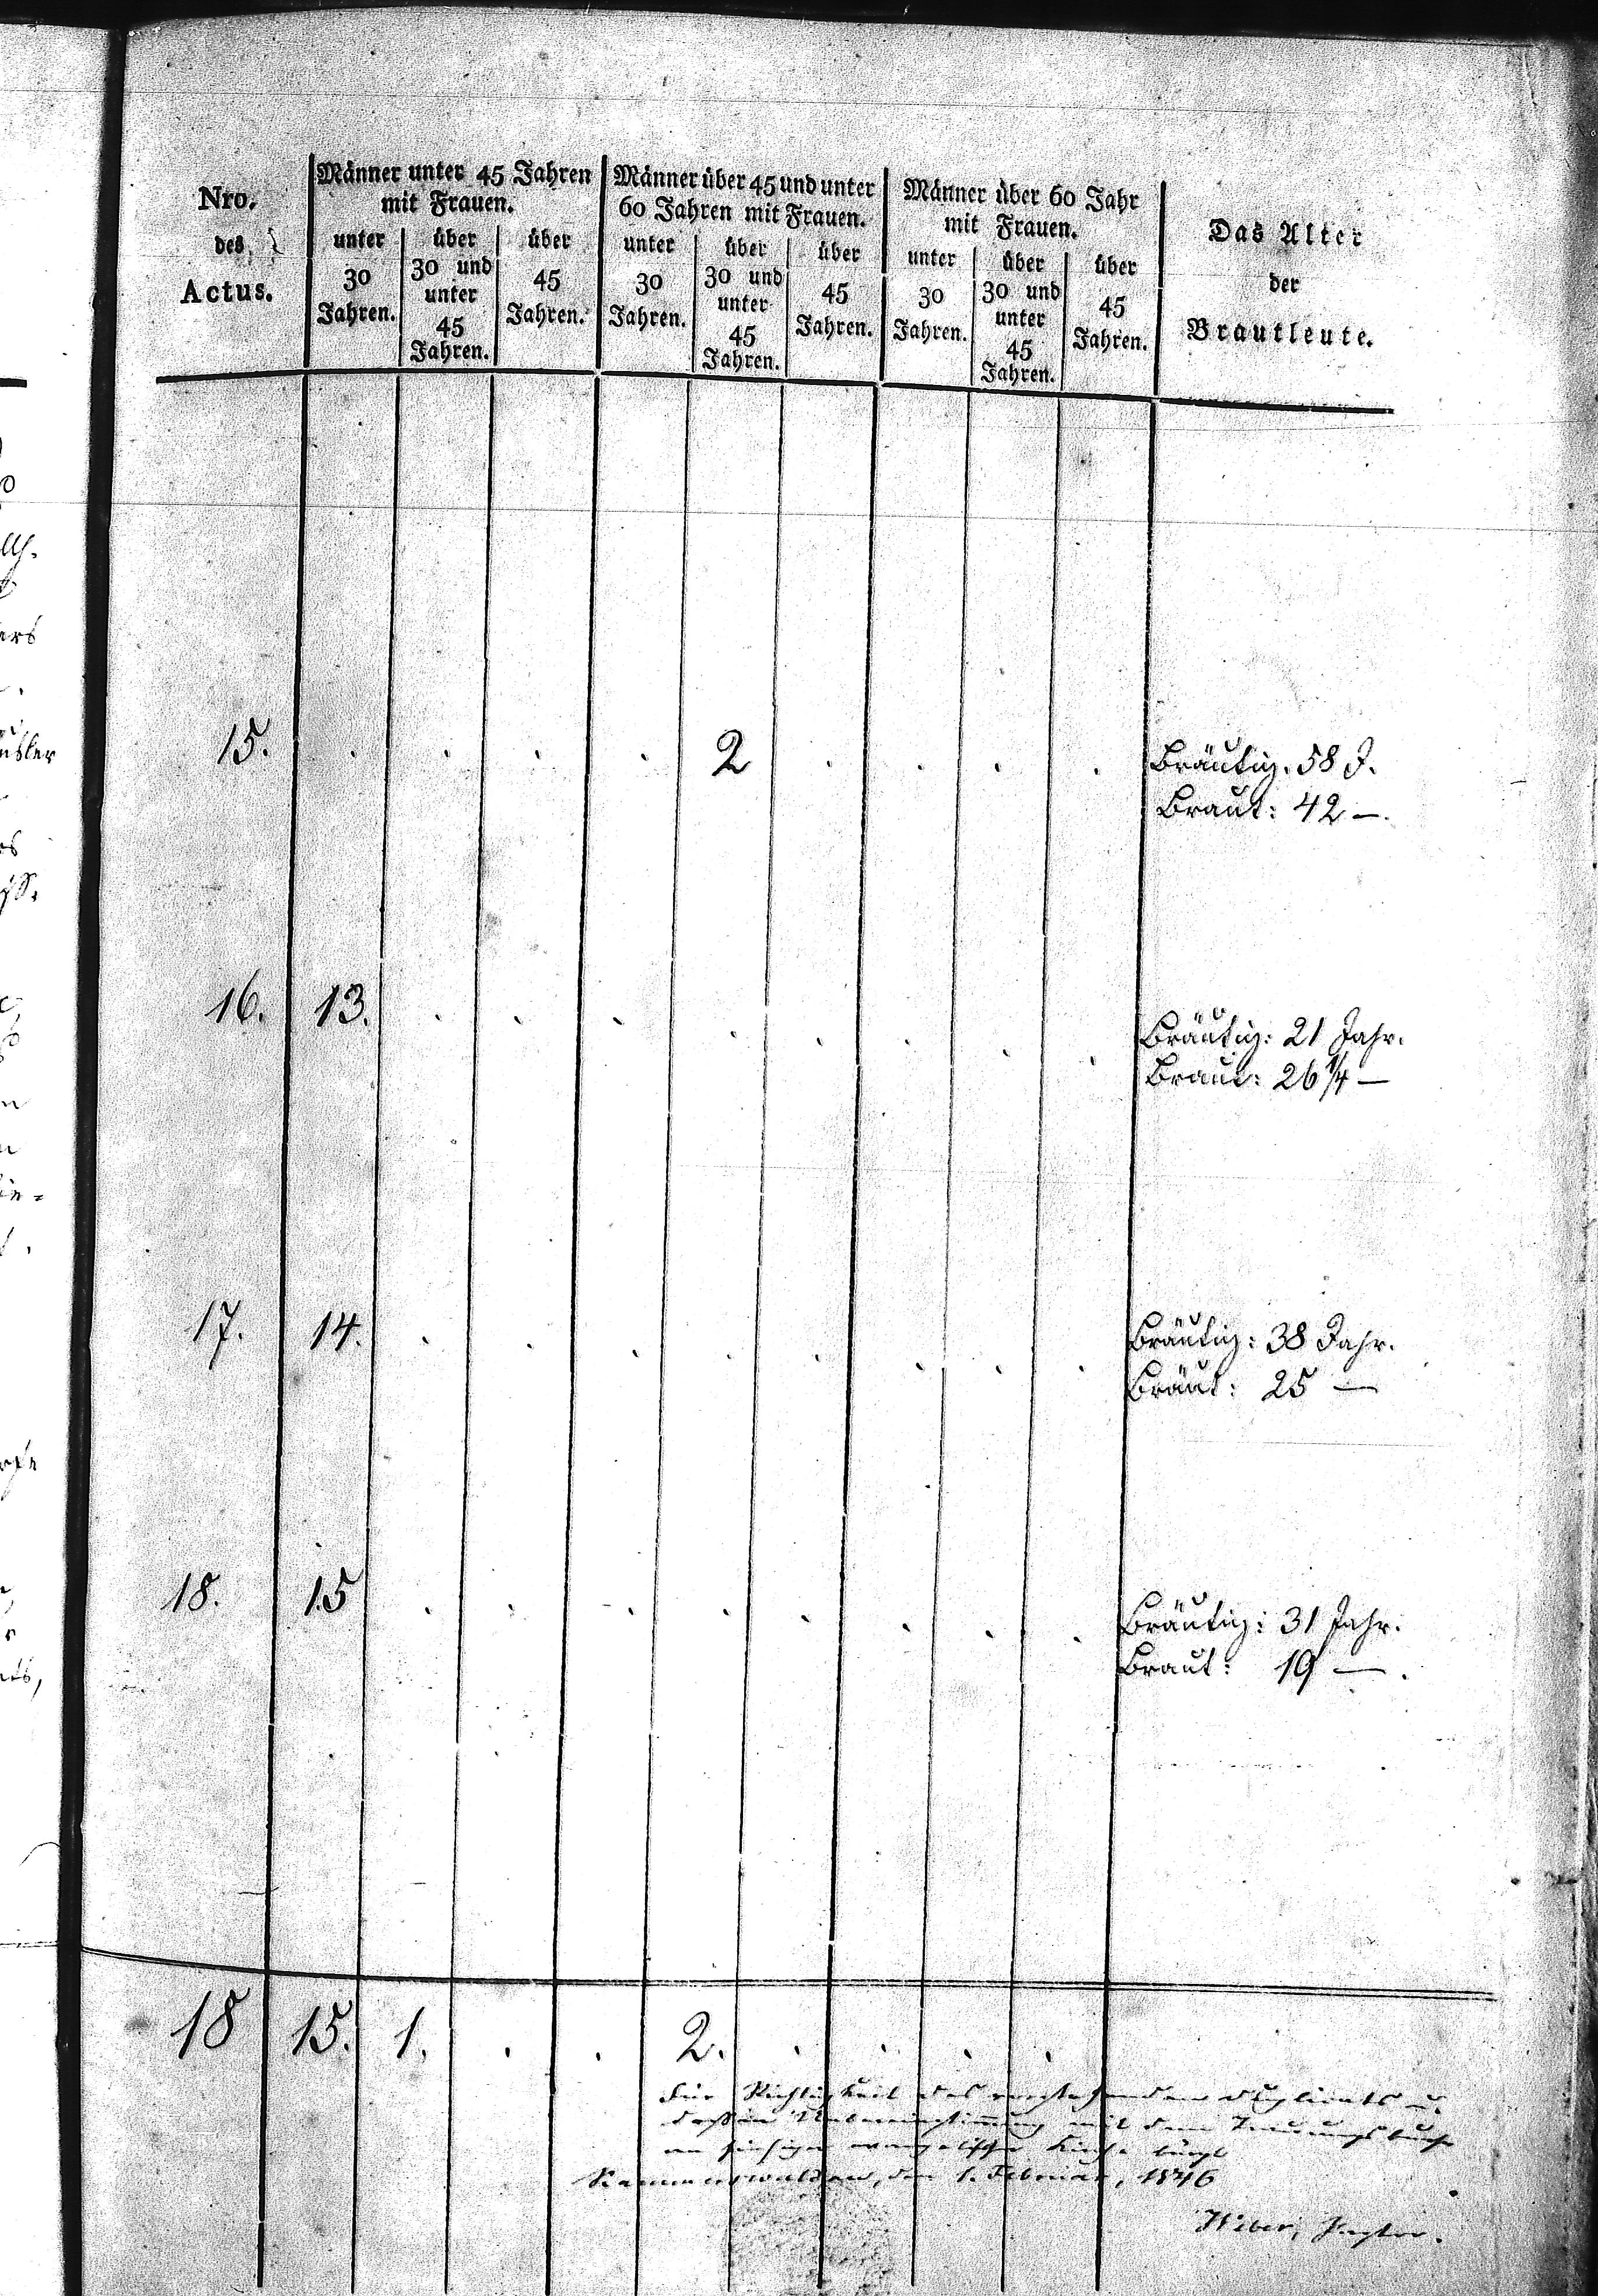 Nro.
des
Actus.
Männer unter 45 Jahren
mit Frauen.
unter
30
Jahren.
über
30 und
unter
45
Jahren.
über
45
Jahren.
Männer über 45 und unter
60 Jahren mit Frauen.
unter
30
Jahren.
über
30 und
unter
45
Jahren.
über
45
Jahren.
Männer über 60 Jahr
mit Frauen.
unter
30
Jahren.
über
30 und
unter
45
Jahren.
über
45
Jahren.
Das Alter
der
Brautleute.
15. . . . . 2 . . . . Bräutig. 58 J.
Braut: 42 —.
16. 13. . . . . . . . . Bräutig: 21 Jahr.
Braut: 26 1/4 —
17. 14. . . . . . . . . Bräutig: 38 Jahr.
Bräut: 25 —
18. 15 . . . . . . . . Bräutig: 31 Jahr.
Braut: 19 —.
18 15. 1. . . 2. . . . .
Für Richtigkeit des vorstehenden Duplicats u.
deßen Uebereinstimmung mit dem Trauungsbuche
der hiesigen evangelischen Kirche bürgt
den 1. Februar, 1846
Pastor.